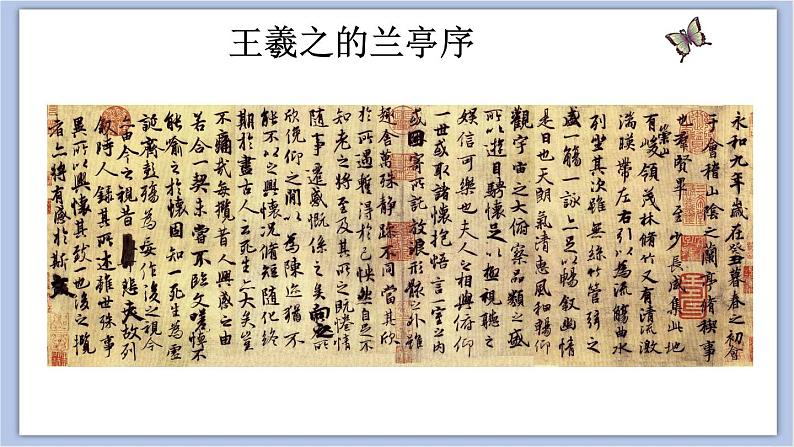 王羲之的兰亭序
永和九年歲在癸丑暮春之初會
于會稽山陰之蘭亭脩稧事
也羣賢畢至少長咸集此地
有崇山峻領茂林脩竹又有清流激
湍暎帶左右引以為流觴曲水
列坐其次雖無絲竹管弦之
盛一觴一詠亦足以暢敘幽情
是日也天朗氣清惠風和暢仰
觀宇宙之大俯察品類之盛
所以遊目騁懷足以極視聽之
娛信可樂也夫人之相與俯仰
一世或取諸懷抱悟言一室之內
或因寄所託放浪形骸之外雖
趣舍萬殊靜躁不同當其欣
於所遇蹔得於己怏然自足不
知老之將至及其所之既惓情
隨事遷感慨係之矣向之所
欣俛仰之閒以為陳迹猶不
能不以之興懷況脩短隨化終
期於盡古人云死生亦大矣豈
不痛哉每攬昔人興感之由
若合一契未嘗不臨文嗟悼不
能喻之於懷固知一死生為虛
誕齊彭殤為妄作後之視今
亦由今之視昔悲夫故列
敘時人錄其所述雖世殊事
異所以興懷其致一也後之攬
者亦將有感於斯文